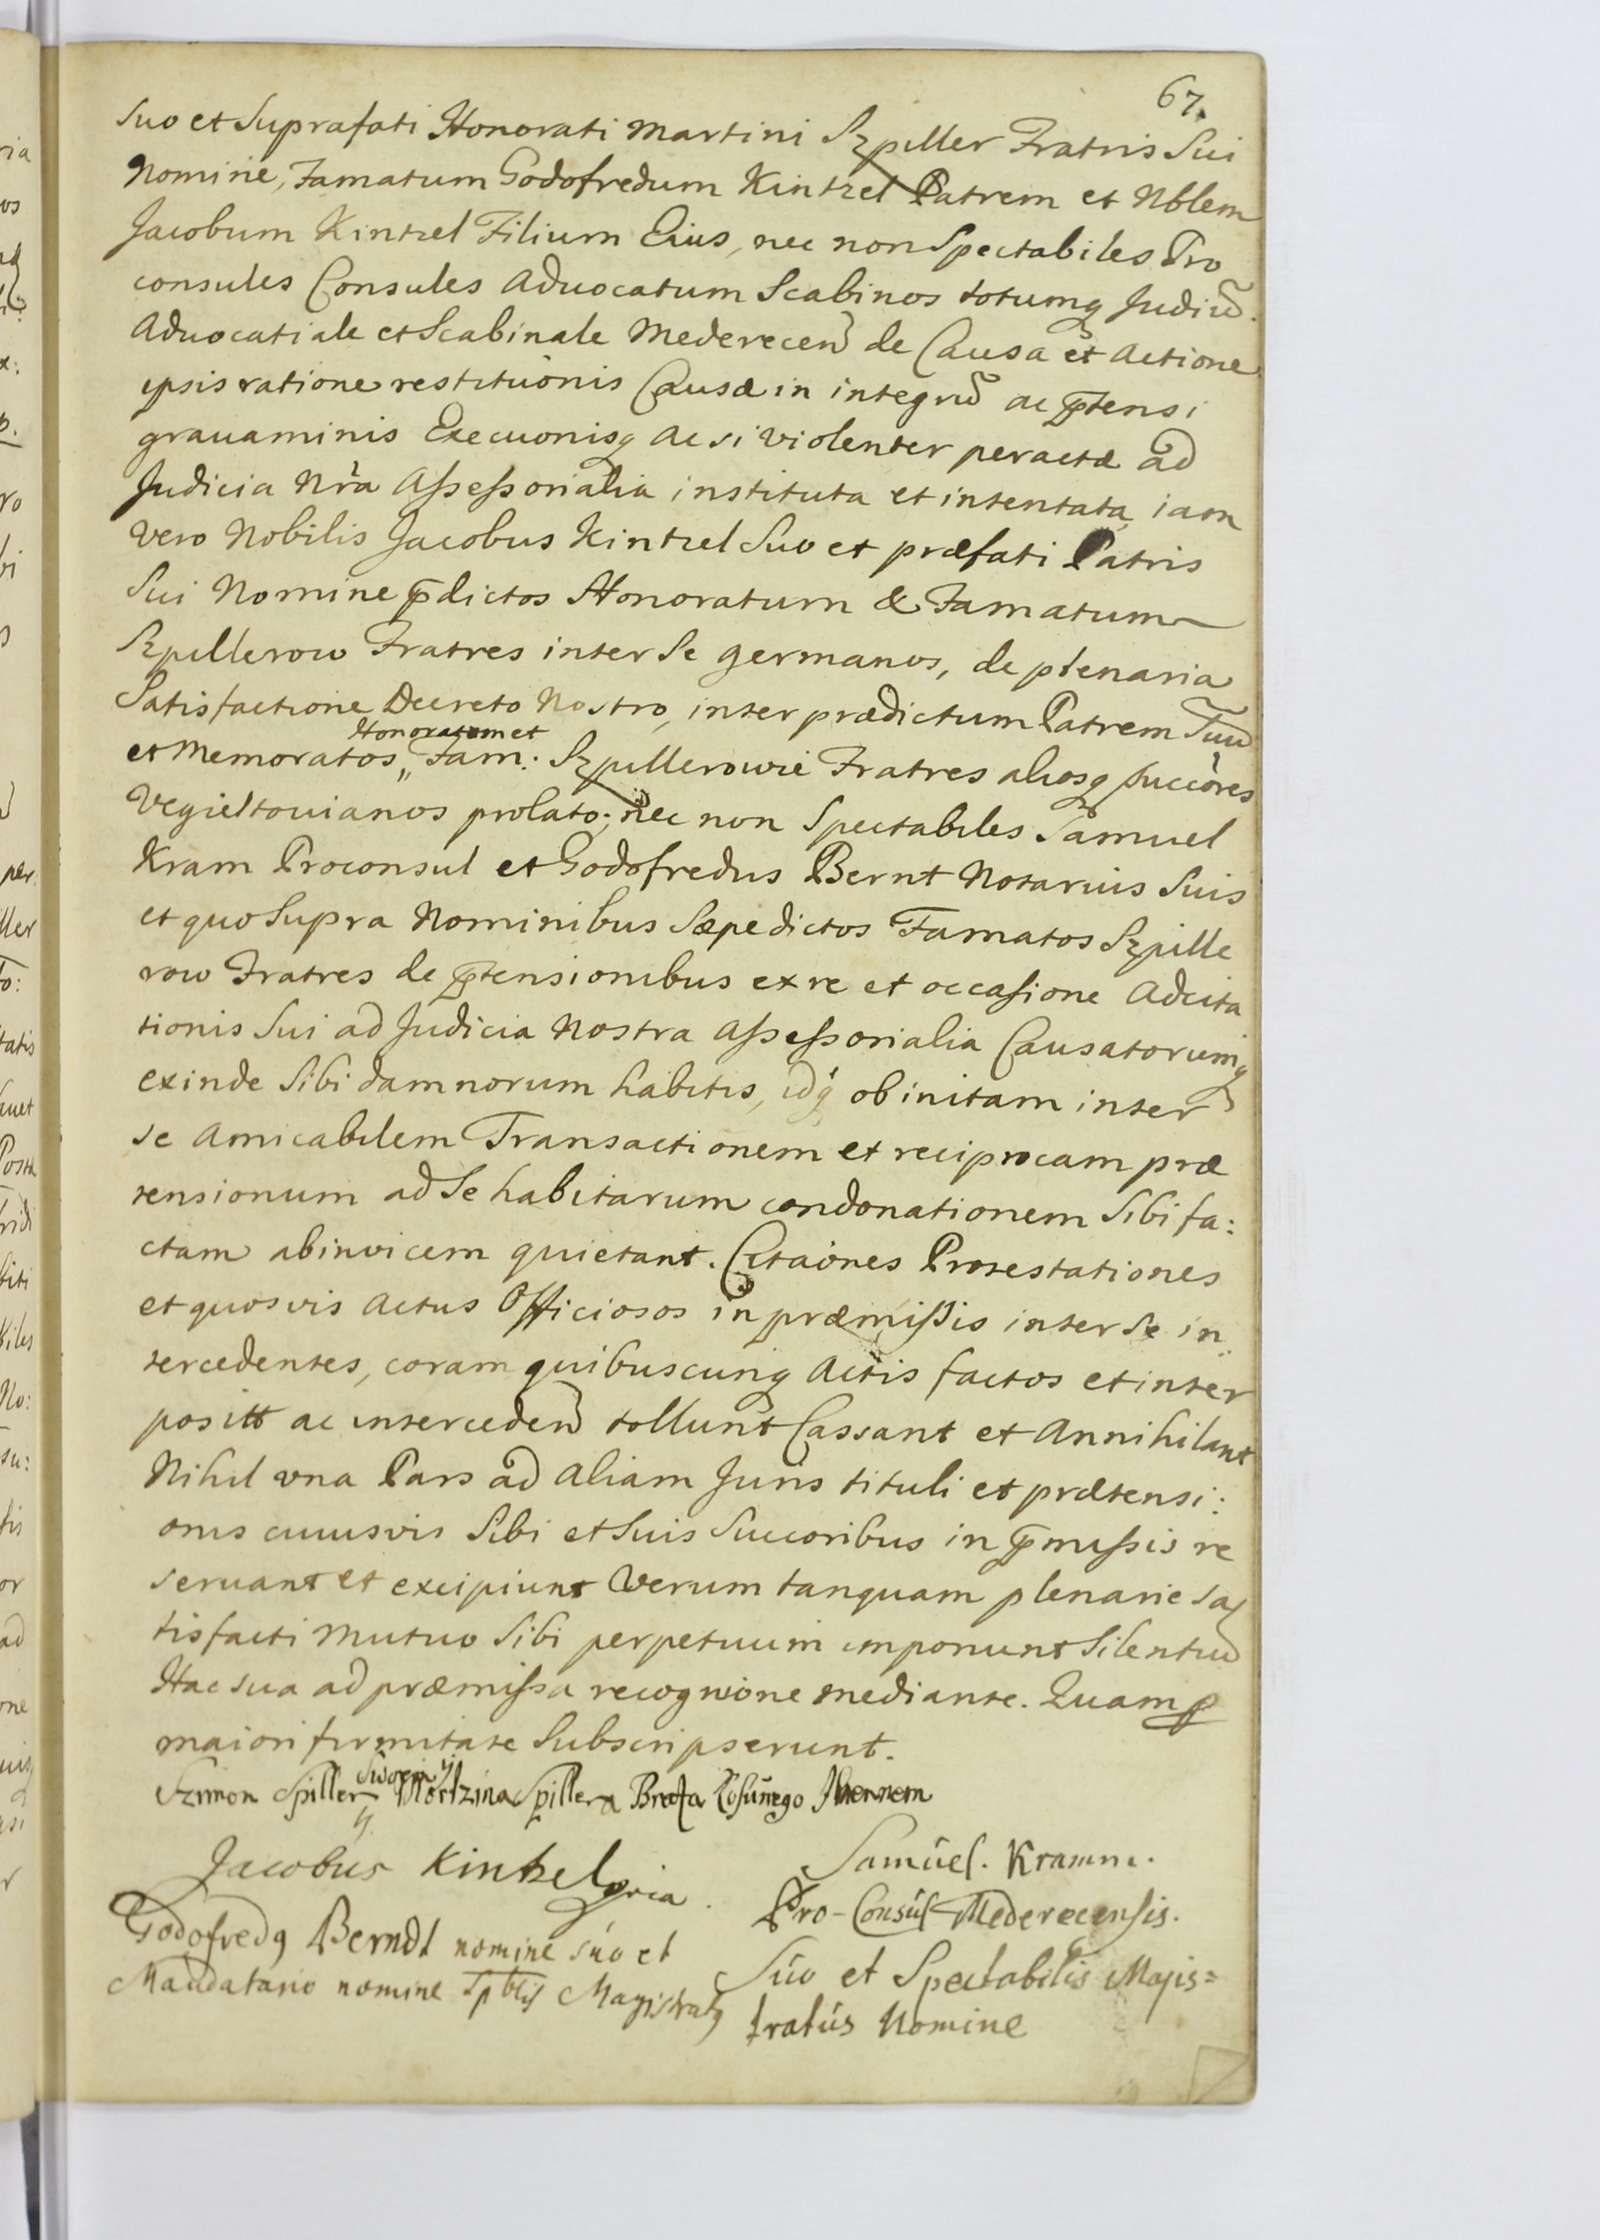 67.
Suo et Suprafati Honorati Martini Szpiller Fratris Sui
Nomine, Famatum Godofredum Kintzel Patrem et Nblem
Jacobum Kintzel Filium Eius, nec non Spectabiles Pro
consules Consules Aduocatum Scabinos totumq Judiũ.
Aduocatiale et Scabinale Mederecen̄ de Causa et Actione
ipsis ratione restituõnis Causæ in integrũ ac p̄tensi
grauaminis Execuõnisq ac si violenter peractæ ad
Judicia Nr̃a Assessorialia instituta et intentata, iam
vero Nobilis Jacobus Kintzel Suo et præfati Patris
Sui Nomine p̄dictos Honoratum & Famatum
Szpillerow Fratres inter Se germanos, de plenaria
Satisfactione Decreto Nostro, inter prædictum Patrem Suũ
Honoratum et
et Memoratos „ Fam: Szpillerowie Fratres aliosq succõres
Vegieltouianos prolato; nec non Spectabiles Samuel
Kram Proconsul et Godofredus Bernt Notarius Suis
et quo Supra Nominibus Sæpedictos Famatos Szpille
row Fratres de p̄tensionibus ex re et occasione Adcita
tionis Sui ad Judicia Nostra Assessorialia Causatorumq
exinde Sibi damnorum habitis, idq́ ob initam inter
se Amicabilem Transactionem et reciprocam præ
tensionum ad Se habitarum condonationem Sibi fa:
ctam abinvicem quietant. Citaõnes Protestationes
et quosvis Actus Officiosos in præmissis inter Se in
tercedentes, coram quibuscunq Actis factos et inter
positt ac interceden̄ tollunt Cassant et Annihilant
Nihil una Pars ad aliam Juris tituli et prætensi:
onis cuiusvis Sibi et Suis Succoribus in p̄missis re
seruant et excipiunt Verum tanquam plenarie sa
tisfacti Mutuo Sibi perpetuum imponunt Silentiũ
Hac sua ad præmissa recogniõne mediante. Quam p
maiori firmitate Subscripserunt.
Swoim ÿ
Szimon Spiller Mortzina Spillera Brata
Jacobus Kintzel mria.
Samuel. Kramm.
Pro-Consul Mederecensis.
Godofredq Berndt nomine súo et
Súo et Spectabilis Majis=
Mandatario nomine Spblis Magistratq
tratús Nomine